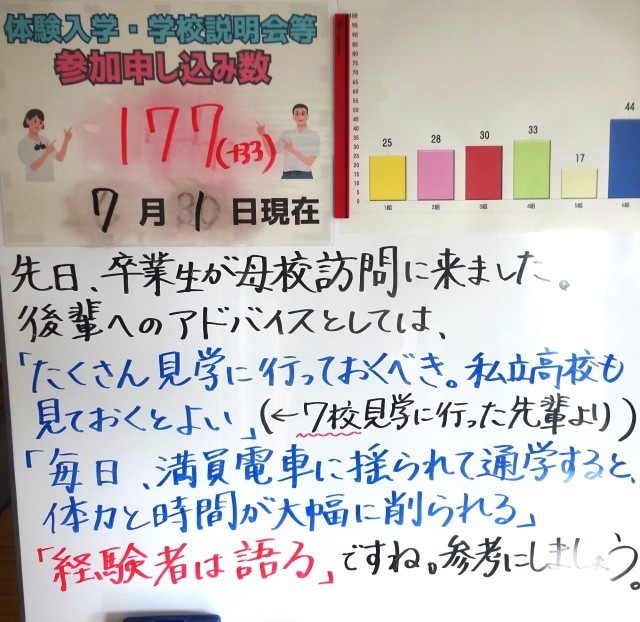 体験入学・学校説明会等
参加申し込み数
177(+33)
7月1日現在
100
95
90
85
80
75
70
65
60
55
50
45
40
35
30
25
20
15
10
5
0
25
28
30
33
17
44
1組
2組
3組
4組
5組
6組
先日、卒業生が母校訪問に来ました。
後輩へのアドバイスとしては、
「たくさん見学に行っておくべき。私立高校も
見ておくとよい」(←7校見学に行った先輩より)
「毎日、満員電車に揺られて通学すると、
体力と時間が大幅に削られる」
「経験者は語る」ですね。参考にしましょう。